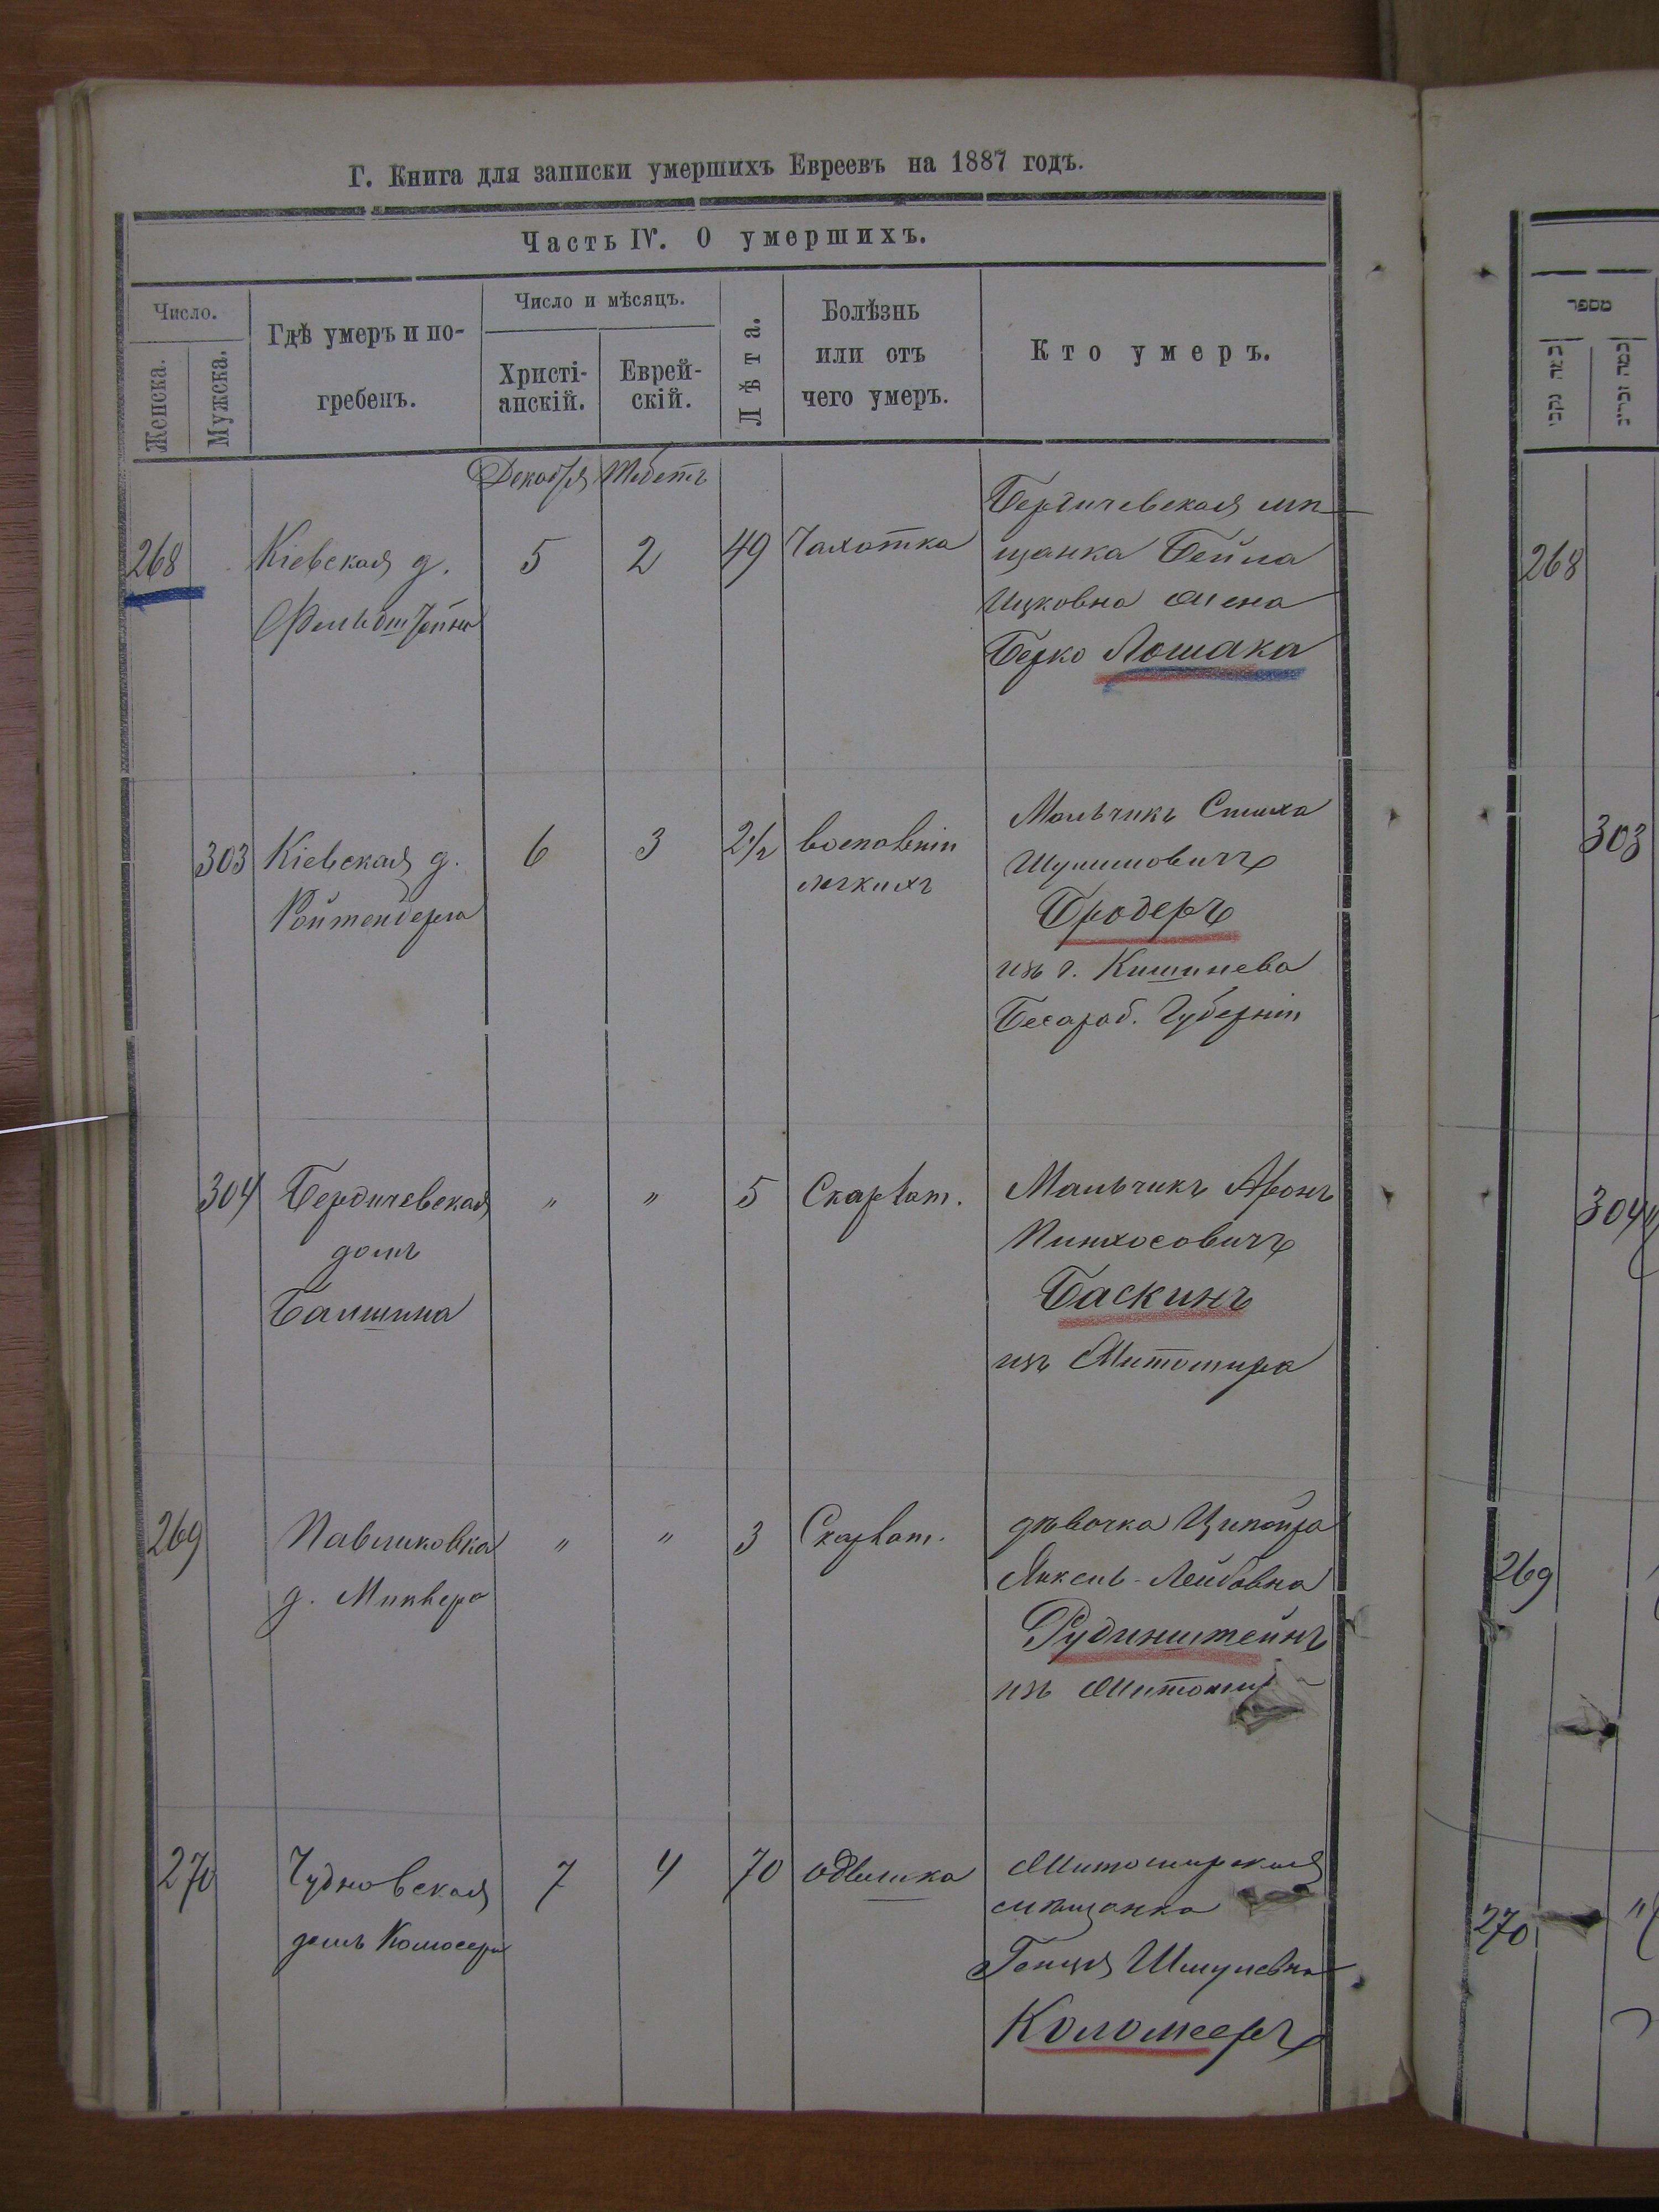 Г. Книга для записки умершихъ Евреевъ на 1887 годъ.
Часть IV. О умершихъ.
Число.
Женска.
Мужска.
Гдѣ умеръ и по-
гребенъ.
Число и мѣсяцъ.
Христі-
анскій.
Еврей-
скій.
Лѣта.
Болѣзнь
или отъ
чего умеръ.
Кто умеръ.
Декабря Тебетъ
268 Кіевская д. 5 2 49 Чахотка
Бердичевская мѣ
щанка Бейла
Ицковна жена
Берко Лошака
303 Кіевская д. 6 3 2 1/2
Ройтенберга
воспаленіи
легкихъ
Мальчикъ Симха
Бродеръ
изъ г. Кишинева
Бесараб. Губерніи
304 Бердичевская " " 5 Скарлат.
домъ
Балшина
Мальчикъ Аронъ
Пинхосовичъ
Баскинъ
изъ Житомира
269 Павликовка " " 3 Скарлат.
д.
дѣвочка Ципойра
Янкель-Лейбовна
Рудинштейнъ
изъ
270 Чудновская 7 4 70 одышка
домъ
Житомирская
мѣщанка
Генця Шмулевна
Коломеецъ
מספר
268
303
304
269
270